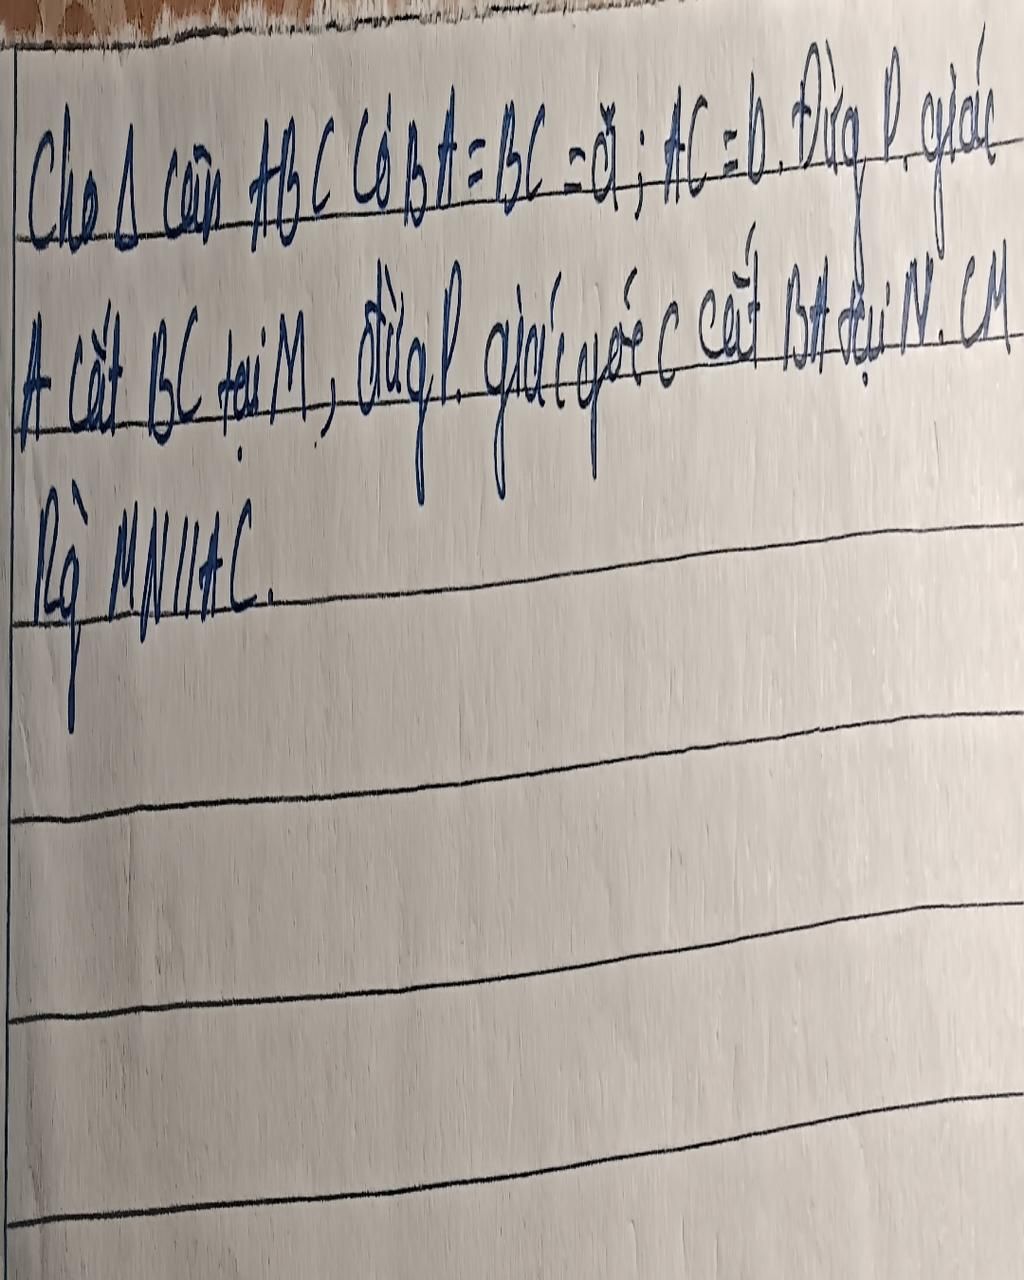 Cho Δ cân ABC Có BA = BC = a; AC = b. Đừg P. giác
A cắt BC tại M, đừg P. giác góc C cắt BA tại N. CM
Rg̀ MN//AC.